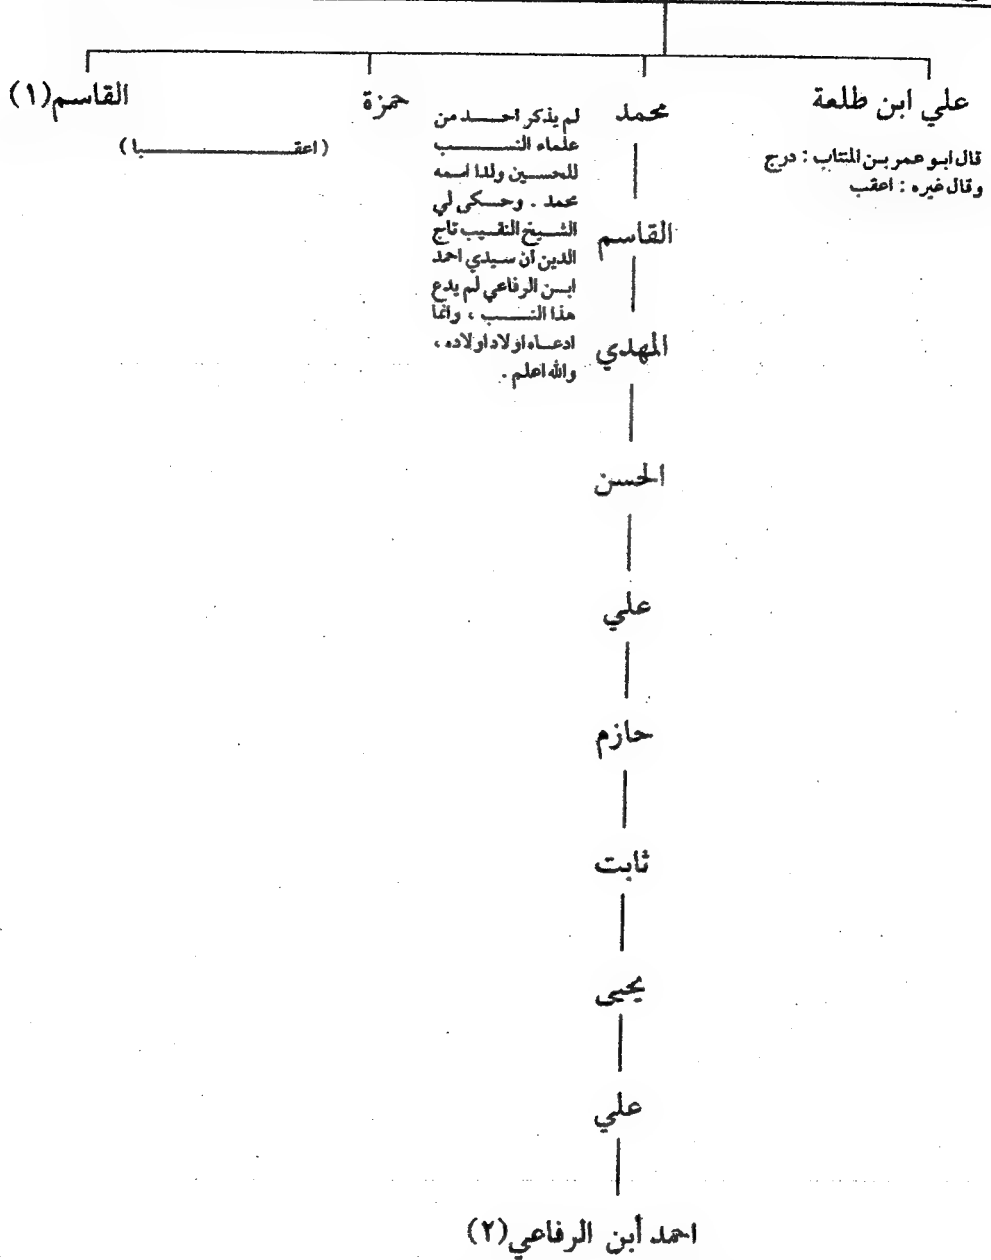 علي ابن طلعة
قال ابو عمر بن المنتاب : درج
وقال غيره : اعقب
محمد
لم يذكر احد من
علماء النسب
للحسين ولدا اسمه
محمد . وحكى لي
الشيخ النقيب تاج
الدين ان سيدي احمد
ابن الرفاعي لم يدع
هذا النسب ، وانما
ادعاه اولاد اولاده ،
والله اعلم .
حمزة
القاسم (١)
(اعقبا)
القاسم
المهدي
الحسن
علي
حازم
ثابت
يحيى
علي
احمد أبن الرفاعي (٢)